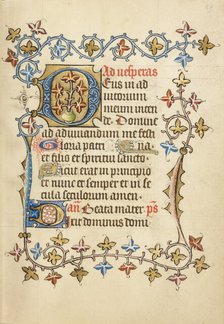 Ad vesperas
Deus in ad
iutorium
meum inten
de. Domine
ad adiuvandum me festi
Gloria patri na
et filio et spiritui sancto
Sicut erat in principio
et nunc et semper et in se
cula seculorum amen
an Beata mater ps
Dixit dominus domi